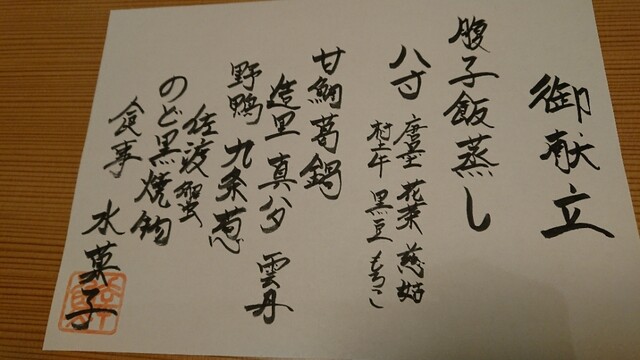 御献立
腹子飯蒸し
八寸 唐墨 花菜 慈姑
村上牛 黒豆 もろこ
甘鯛葛鍋
造里 真鯒 雲丹
野鴨 九条葱
佐渡蟹
のど黒焼物
食事 水菓子